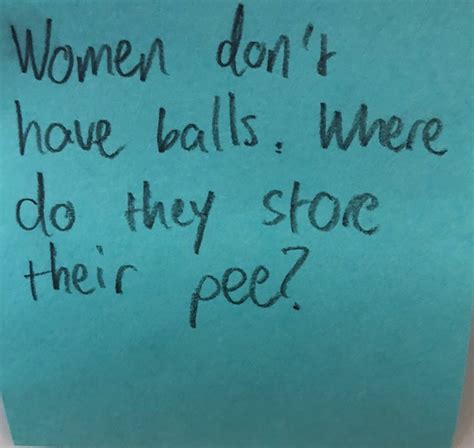 Women don't
have balls. Where
do they store
their pee?